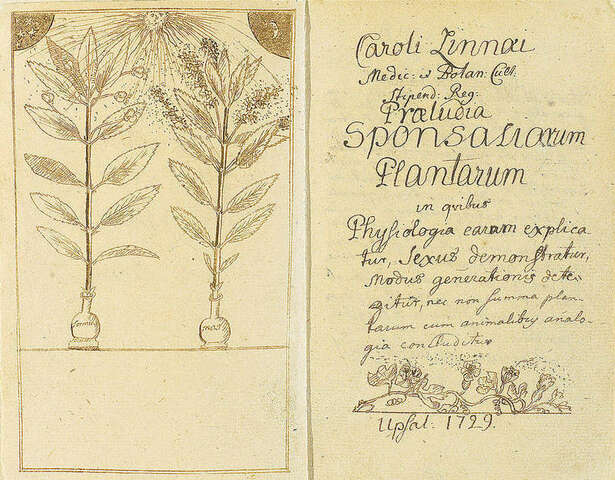 femin
mas
Caroli Linnæi
Medic: & Botan: Cult.
Stipend: Reg:
Præludia
SPONSALIARUM
Plantarum
in qvibus
Physiologia earum explica
tur, Sexus demonstratur,
Modus generationis dete-
gitur, nec non summa plan-
tarum cum animalibus analo-
gia concluditur
Upsal. 1729.